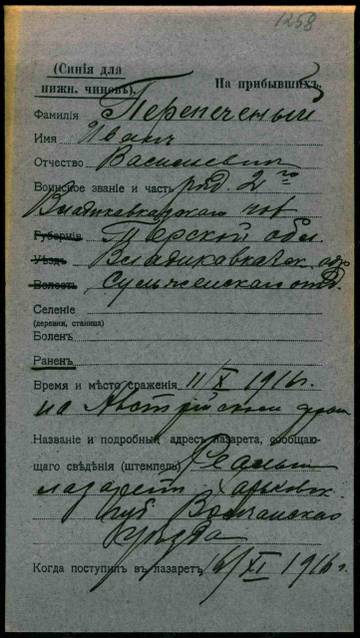 1258
(Синія для
нижн. чиновъ).
На прибывшихъ.
Фамилія Перепеченый
Имя Иванъ
Отчество Васильевич
Воинское званіе и часть ряд. 2го
Владикавказского
Губернія Терской обл.
Уѣздъ Владикавказск.
Волость Сунженскаго отд.
Селеніе
(деревня, станица)
Боленъ
Раненъ
Время и мѣсто сраженія 11/X 1916 г.
на Австрійском
Названіе и подробный адресъ лазарета, сообщаю-
щаго свѣдѣнія (штемпель)
лазаретъ Харьковск.
губ. Волчанскаго
уѣзда
Когда поступилъ въ лазаретъ 16/XI 1916 г.